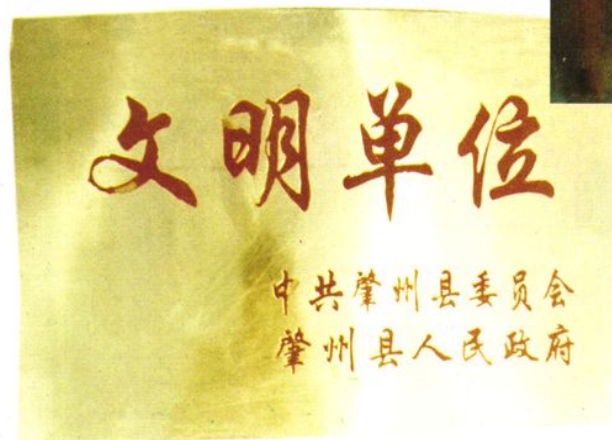 文明单位
中共肇州县委员会
肇州县人民政府